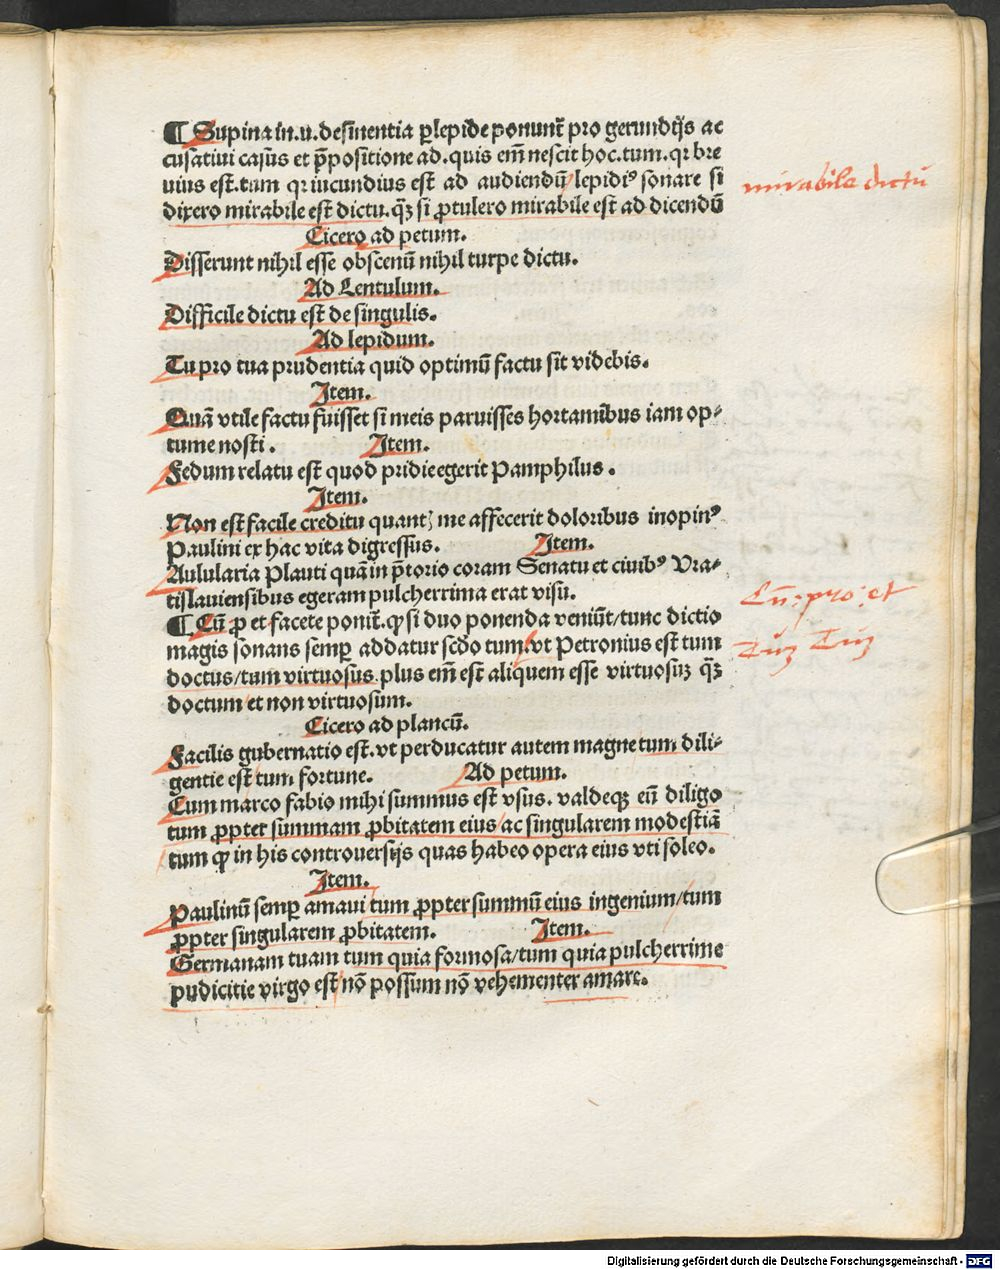 ¶ Supina in.u.desinentia ꝑlepide ponunt̃ pro gerundijs ac
cusatiui casus et p̃positione ad.quis em̃ nescit hoc.tum.qꝛ bre
uius est.tum qꝛ iucundius est ad audiendũ/lepidiꝰ sonare si
dixero mirabile est dictu.qꝫ̃ si ꝓtulero mirabile est ad dicendũ
mirabile dictũ
Cicero ad petum.
Disserunt nihil esse obscenũ nihil turpe dictu.
Ad Lentulum.
Difficile dictu est de singulis.
Ad lepidum.
Tu pro tua prudentia quid optimũ factu sit videbis.
Item.
Quã vtile factu fuisset si meis paruisses hortamĩbus iam op⸗
tume nosti. Item.
Fedum relatu est quod pridie egerit Pamphilus.
Item.
Non est facile creditu quantꝫ me affecerit doloribus inopinꝰ
Paulini ex hac vita digressus. Item.
Aulularia Plauti quã in p̃torio coram Senatu et ciuibꝰ Vra⸗
tislauiensibus egeram pulcherrima erat visu.
¶ Cũ ꝓ et facete ponit̃.ꝙ si duo ponenda veniũt/tunc dictio
magis sonans semꝑ addatur scđo tum.vt Petronius est tum
doctus/tum virtuosus.plus em̃ est aliquem esse virtuosuꝫ qꝫ̃
doctum et non virtuosum.
Cũ: pro: et
Tuꝫ Tuꝫ
Cicero ad plancũ.
Facilis gubernatio est.vt perducatur autem magne tum dili⸗
gentie est tum fortune. Ad petum.
Cum marco fabio mihi summus est vsus.valdeqꝫ eũ diligo
tum ꝓpter summam ꝓbitatem eius/ac singularem modestiã
tum ꝙ in his controuersijs quas habeo opera eius vti soleo.
Item.
Paulinũ semꝑ amaui tum ꝓpter summũ eius ingenium/tum
ꝓpter singularem ꝓbitatem. Item.
Germanam tuam tum quia formosa/tum quia pulcherrime
pudicitie virgo est/nõ possum nõ vehementer amare.
Digitalisierung gefördert durch die Deutsche Forschungsgemeinschaft - DFG